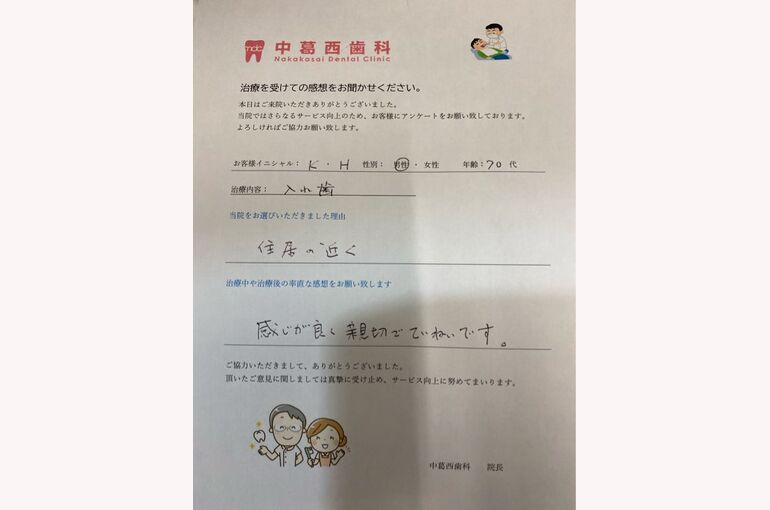 mdc 中葛西歯科
Nakakasai Dental Clinic
治療を受けての感想をお聞かせください。
本日はご来院いただきありがとうございました。
当院ではさらなるサービス向上のため、お客様にアンケートをお願い致しております。
よろしければご協力お願い致します。
お客様イニシャル： K ・ H 性別： 男性 ・ 女性 年齢：70 代
治療内容： 入れ歯
当院をお選びいただきました理由
住居の近く
治療中や治療後の率直な感想をお願い致します
感じが良く親切でていねいです。
ご協力いただきまして、ありがとうございました。
頂いたご意見に関しましては真摯に受け止め、サービス向上に努めてまいります。
中葛西歯科 院長